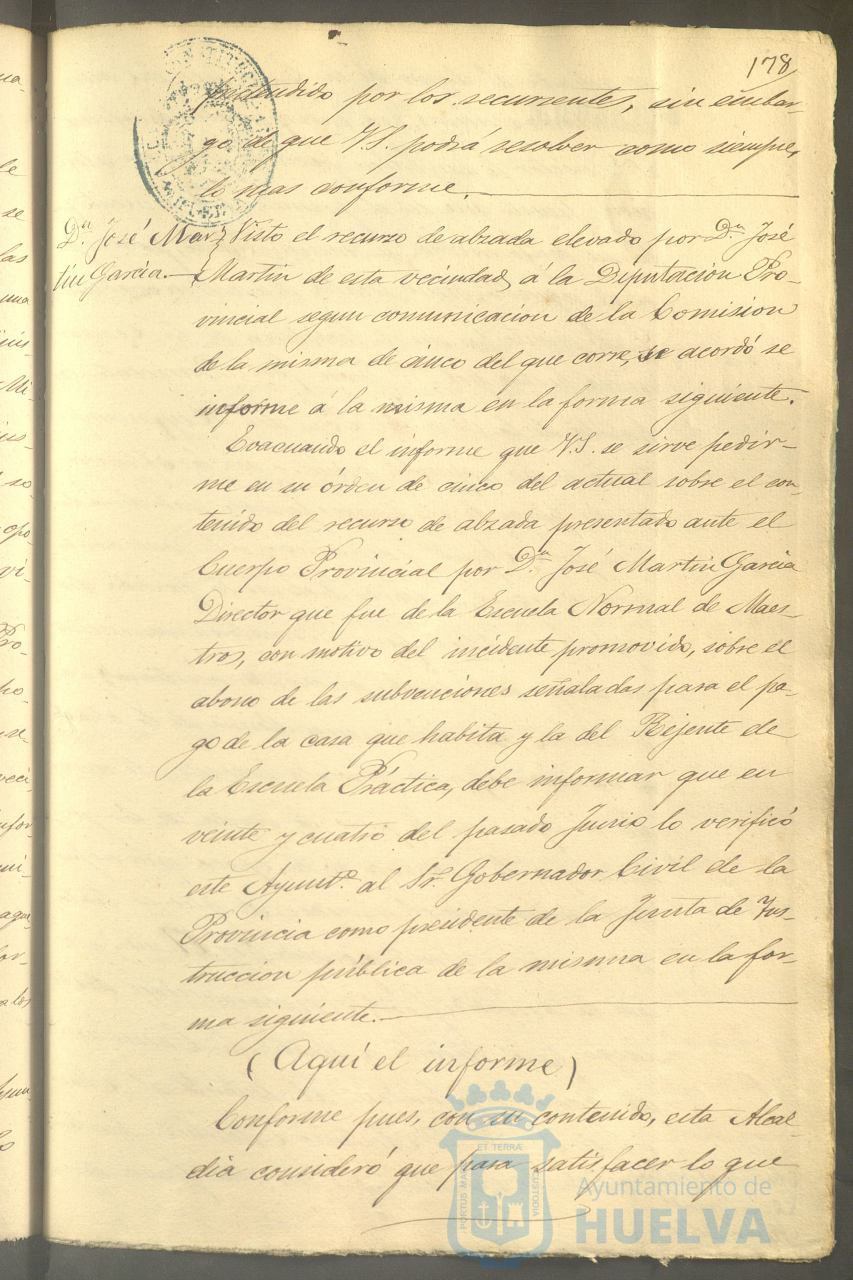 178
pretendido por los recurrentes, sin embar-
go de que V.S. podrá resolver como siempre,
lo mas conforme.
Dn. José Mar-
tin Garcia.
Visto el recurso de alzada elevado por Dn. José
Martin de esta vecindad, á la Diputacion Pro-
vincial segun comunicacion de la Comision
de la misma de cinco del que corre, se acordó se
informe á la misma en la forma siguiente.
Evacuando el informe que V.S. se sirve pedir-
me en su órden de cinco del actual sobre el con-
tenido del recurso de alzada presentado ante el
Cuerpo Provincial por Dn. José Martin Garcia
Director que fue de la Escuela Normal de Maes-
tros, con motivo del incidente promovido, sobre el
abono de las subvenciones señaladas para el pa-
go de la casa que habita y la del Rejente de
la Escuela Práctica, debe informar que en
veinte y cuatro del pasado Junio lo verificó
este Ayuntº. al Sr. Gobernador Civil de la
Provincia como presidente de la Junta de Ins-
truccion pública de la misma en la for-
ma siguiente.
(Aquí el informe)
Conforme pues, con su contenido, esta Alcal-
dia consideró que para satisfacer lo que
ET TERRÆ
PORTUS MA
CUSTODIA
Ayuntamiento de
HUELVA